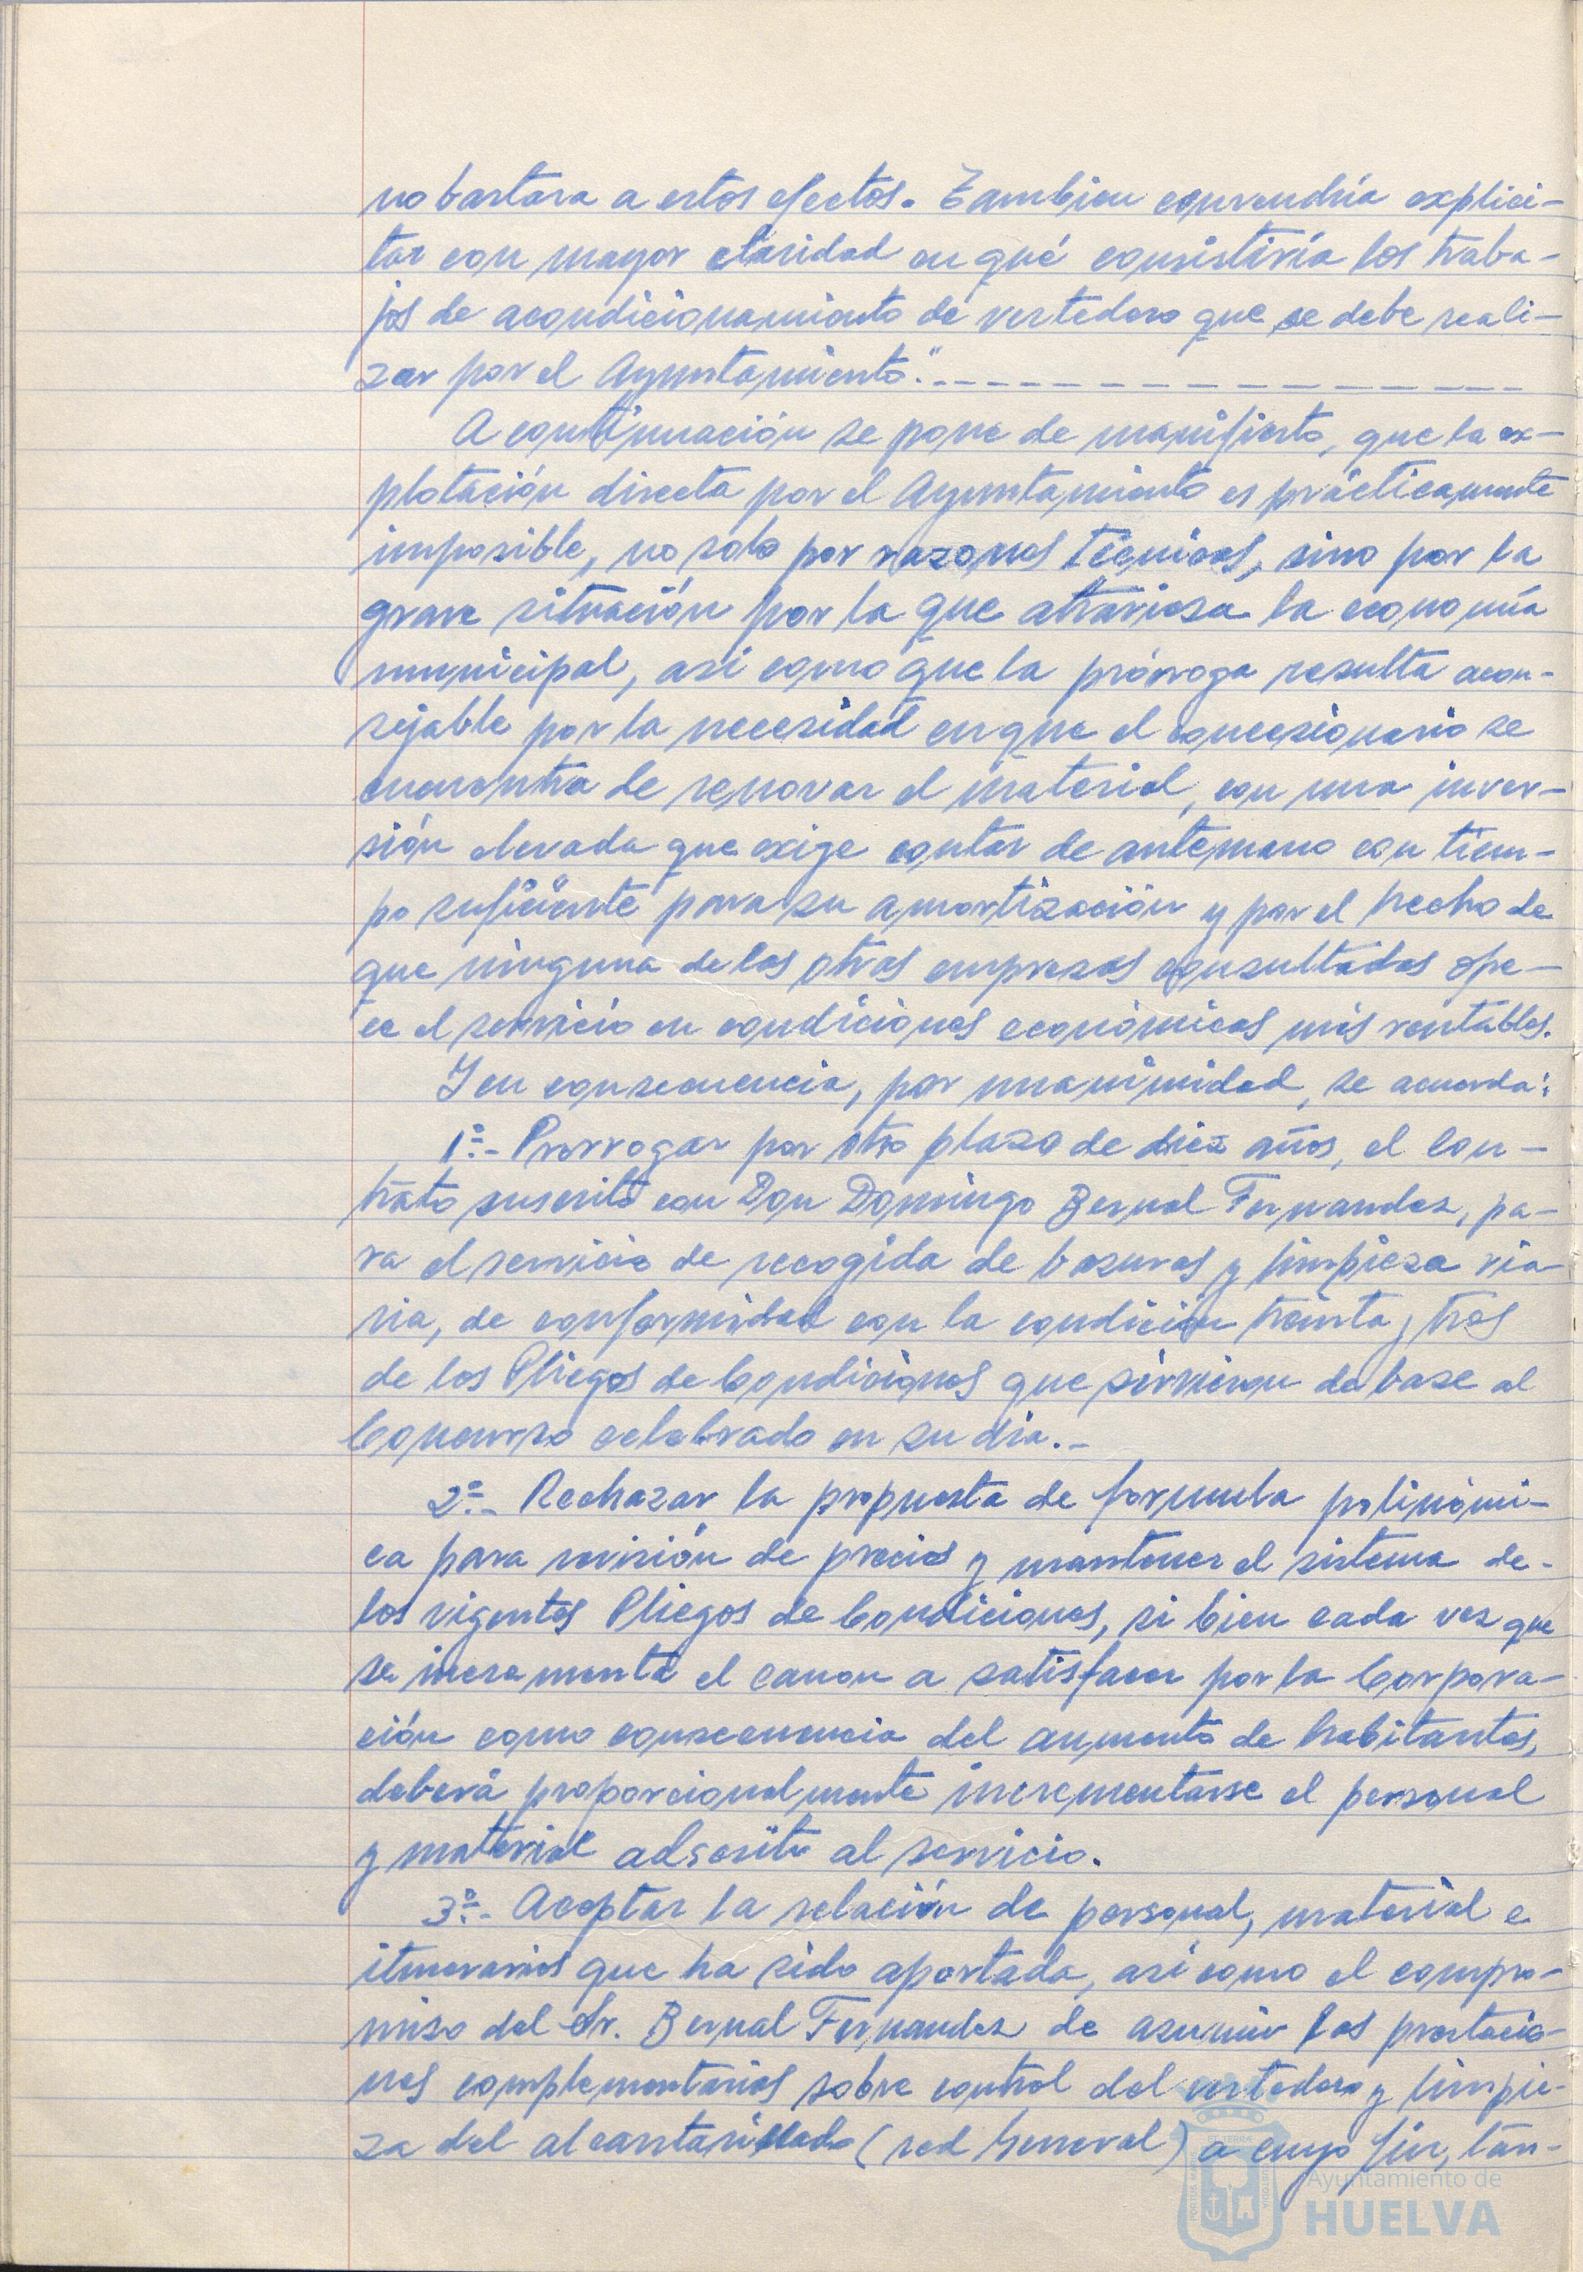 no bastara a estos efectos. Tambien convendría explici-
tar con mayor claridad en qué consistiría los traba-
jos de acondicionamiento de vertedero que se debe reali-
zar por el Ayuntamiento".- - - - - - - - - - - - - - - - -
A continuación se pone de manifiesto, que la ex-
plotación directa por el Ayuntamiento es prácticamente
imposible, no solo por razones técnicas, sino por la
grave situación por la que atraviesa la economía
municipal, asi como que la prórroga resulta acon-
sejable por la necesidad en que el concesionario se
encuentra de renovar el material, con una inver-
sión elevada que exige contar de antemano con tiem-
po suficiente para su amortización y por el hecho de
que ninguna de las otras empresas consultadas ofre-
ce el servicio en condiciones económicas más rentables.
Y en consecuencia, por unanimidad, se acuerda:
1º.- Prorrogar por otro plazo de diez años, el con-
trato suscrito con Don Domingo Bernal Fernandez, pa-
ra el servicio de recogida de basuras y limpieza via
ria, de conformidad con la condición treinta y tres
de los Pliegos de Condiciones que sirvieron de base al
Concurso celebrado en su dia.-
2º.- Rechazar la propuesta de formula polinómi-
ca para revisión de precios y mantener el sistema de-
los vigentes Pliegos de Condiciones, si bien cada vez que
se incrementa el canon a satisfacer por la Corpora-
ción como consecuencia del aumento de habitantes,
deberá proporcionalmente incrementarse el personal
y material adscrito al servicio.
3º.- Aceptar la relación de personal, material e
itinerarios que ha sido aportada, asi como el compro-
miso del Sr. Bernal Fernandez de asumir las prestacio-
nes complementarias sobre control del vertedero y limpie-
za del alcantarillado (red General) a cuyo fin, tan-
PORTUS MARIS ET TERRE CUSTODIA
Ayuntamiento de
HUELVA